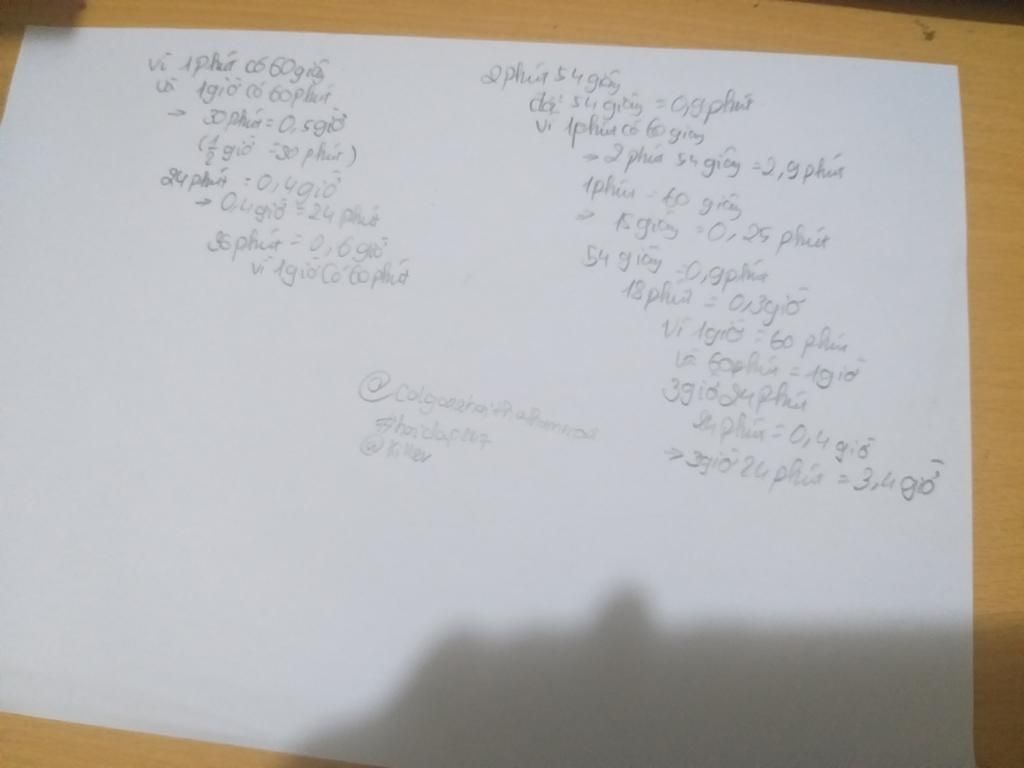 vì 1 phút có 60 giây
và 1 giờ có 60 phút
→ 30 phút = 0,5 giờ
(1/2 giờ = 30 phút)
24 phút = 0,4 giờ
→ 0,4 giờ = 24 phút
36 phút = 0,6 giờ
vì 1 giờ có 60 phút
2 phút 54 giây
đổi 54 giây = 0,9 phút
vì 1 phút có 60 giây
→ 2 phút 54 giây = 2,9 phút
1 phút = 60 giây
→ 15 giây = 0,25 phút
54 giây = 0,9 phút
18 phút = 0,3 giờ
vì 1 giờ = 60 phút
và 60 phút = 1 giờ
3 giờ 24 phút
24 phút = 0,4 giờ
→ 3 giờ 24 phút = 3,4 giờ
#hoidap247
@Killer